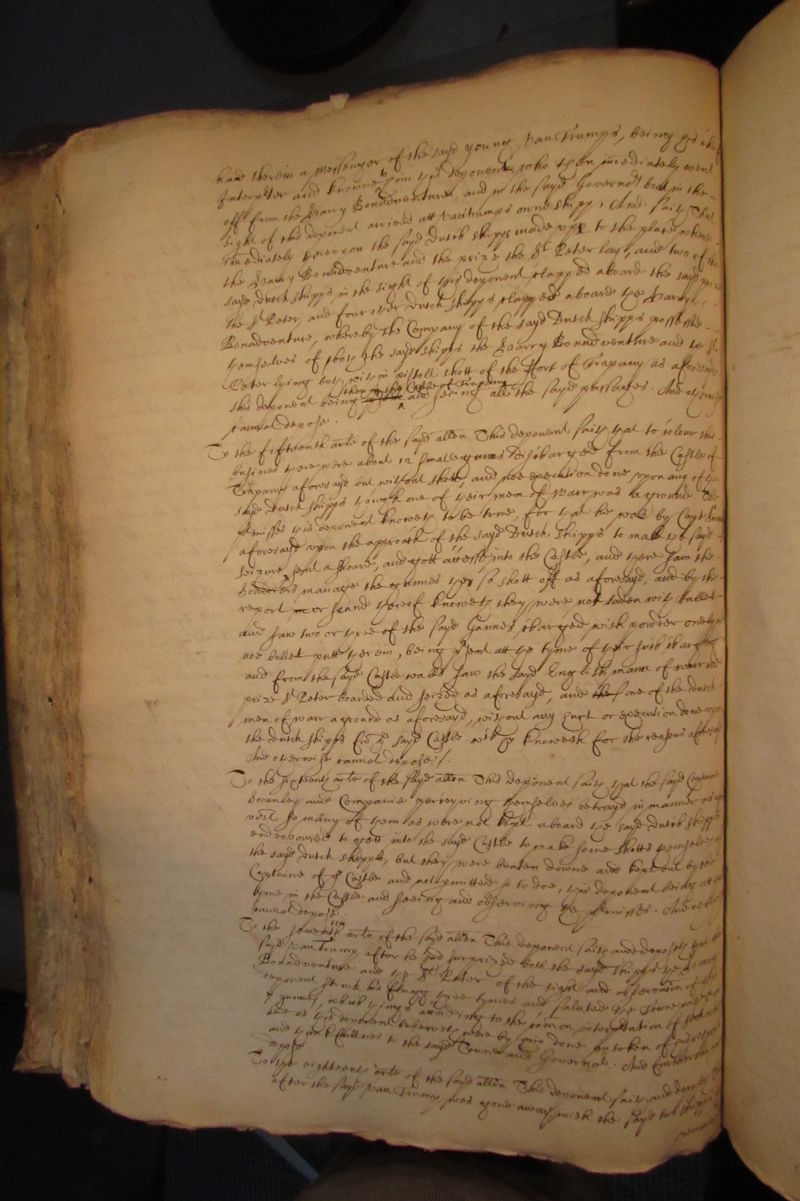 had therein a Messenger of the sayd young Van Trumps, being his
Interpreter and knowne to him this deponent, who then imediately went
off from the Harry Bonadventure, and in the sayd Governors boat in the
sight of this deponent arrived att Van trumps owne shipp, And saith That
imediately thereupon the sayd Dutch shipps made upp to the place where
the Harry Bonadventure and the prize the St Peter lay, and two of the
sayd dutch shipps in the sight of this deponent clapped aboard the sayd prize
the St Peter, and four other dutch shipps clapped aboard the Harry
Bonadventure, whereby the Company of the sayd Dutch shipps possessed
themselves of both the sayd shipps the Harry Bonadventure and the St
Peter lying both within pistoll shott of the Fort of Trapany as aforesayd
this deponent being then in the Castle of Trapany and seeing all the sayd passages. And otherwise
cannot depose.
To the fifteenth arle of the sayd allon This deponent saith that to colour the
busines there were about 12 small gunns discharged from the Castle of
Trapany aforesayd but without shott, and noe execution done upon any of the
sayd Dutch shipps though one of their men of warr was a ground The
premisses this deponent knoweth to be true, for that he was by Capt
aforesayd upon the approach of the sayd Dutch shipps to make the sayd
seizure, sent a shoare, and gott accesse into the Castle, and there saw the
souldiers manage the gunnes they so shott off as aforesayd, and by the
report or sound thereof knoweth they were not laden with bullet
and saw two or three of the sayd Gunnes charged with powder onely
noe bullet putt therein, being present att the tyme of their such charging
and from the sayd Castle walls saw the sayd English man of warr and
prize St Peter boarded and seized as aforesayd, and one of the dutch
men of warr a ground as aforesayd, without any hurt or execution done upon
the dutch shipps from the sayd Castle. wch he knoweth for the reasons aforesayd
And otherwise cannot depose.
To the sixteenth arle of the sayd allon This deponent saith that the sayd Captaine
and Companie perceyving themselves betrayd in manner
soe many of them as were not kept aboard the sayd Dutch shipps
endeavoured to gett into the sayd Castle to make some shotts themselves at
the sayd dutch shipps, but they were beaten downe and kept out by the
Captaine of the Castle and not permitted so to doe, this deponent being at that
tyme in the Castle and seeing and observing the premisses. And
cannot depose.
To the seventeenth arle of the sayd allon This deponent saith and deposeth that the
sayd Van Trump after he had surprized both the sayd shipps the Harry
Bonadventure and the St Peter in the sight and observation of this
deponent struck his flagg three tymes and saluted the Towne with
gunnes, which things according to the common interpretation of
and as this deponent beleeveth were by him done in token of
and thankfullnes to the sayd Towne and Governor. And further
depose
To the eighteenth arle of the sayd allon This deponent saith and
after the sayd Van Trump was gone away with the sayd two shipps